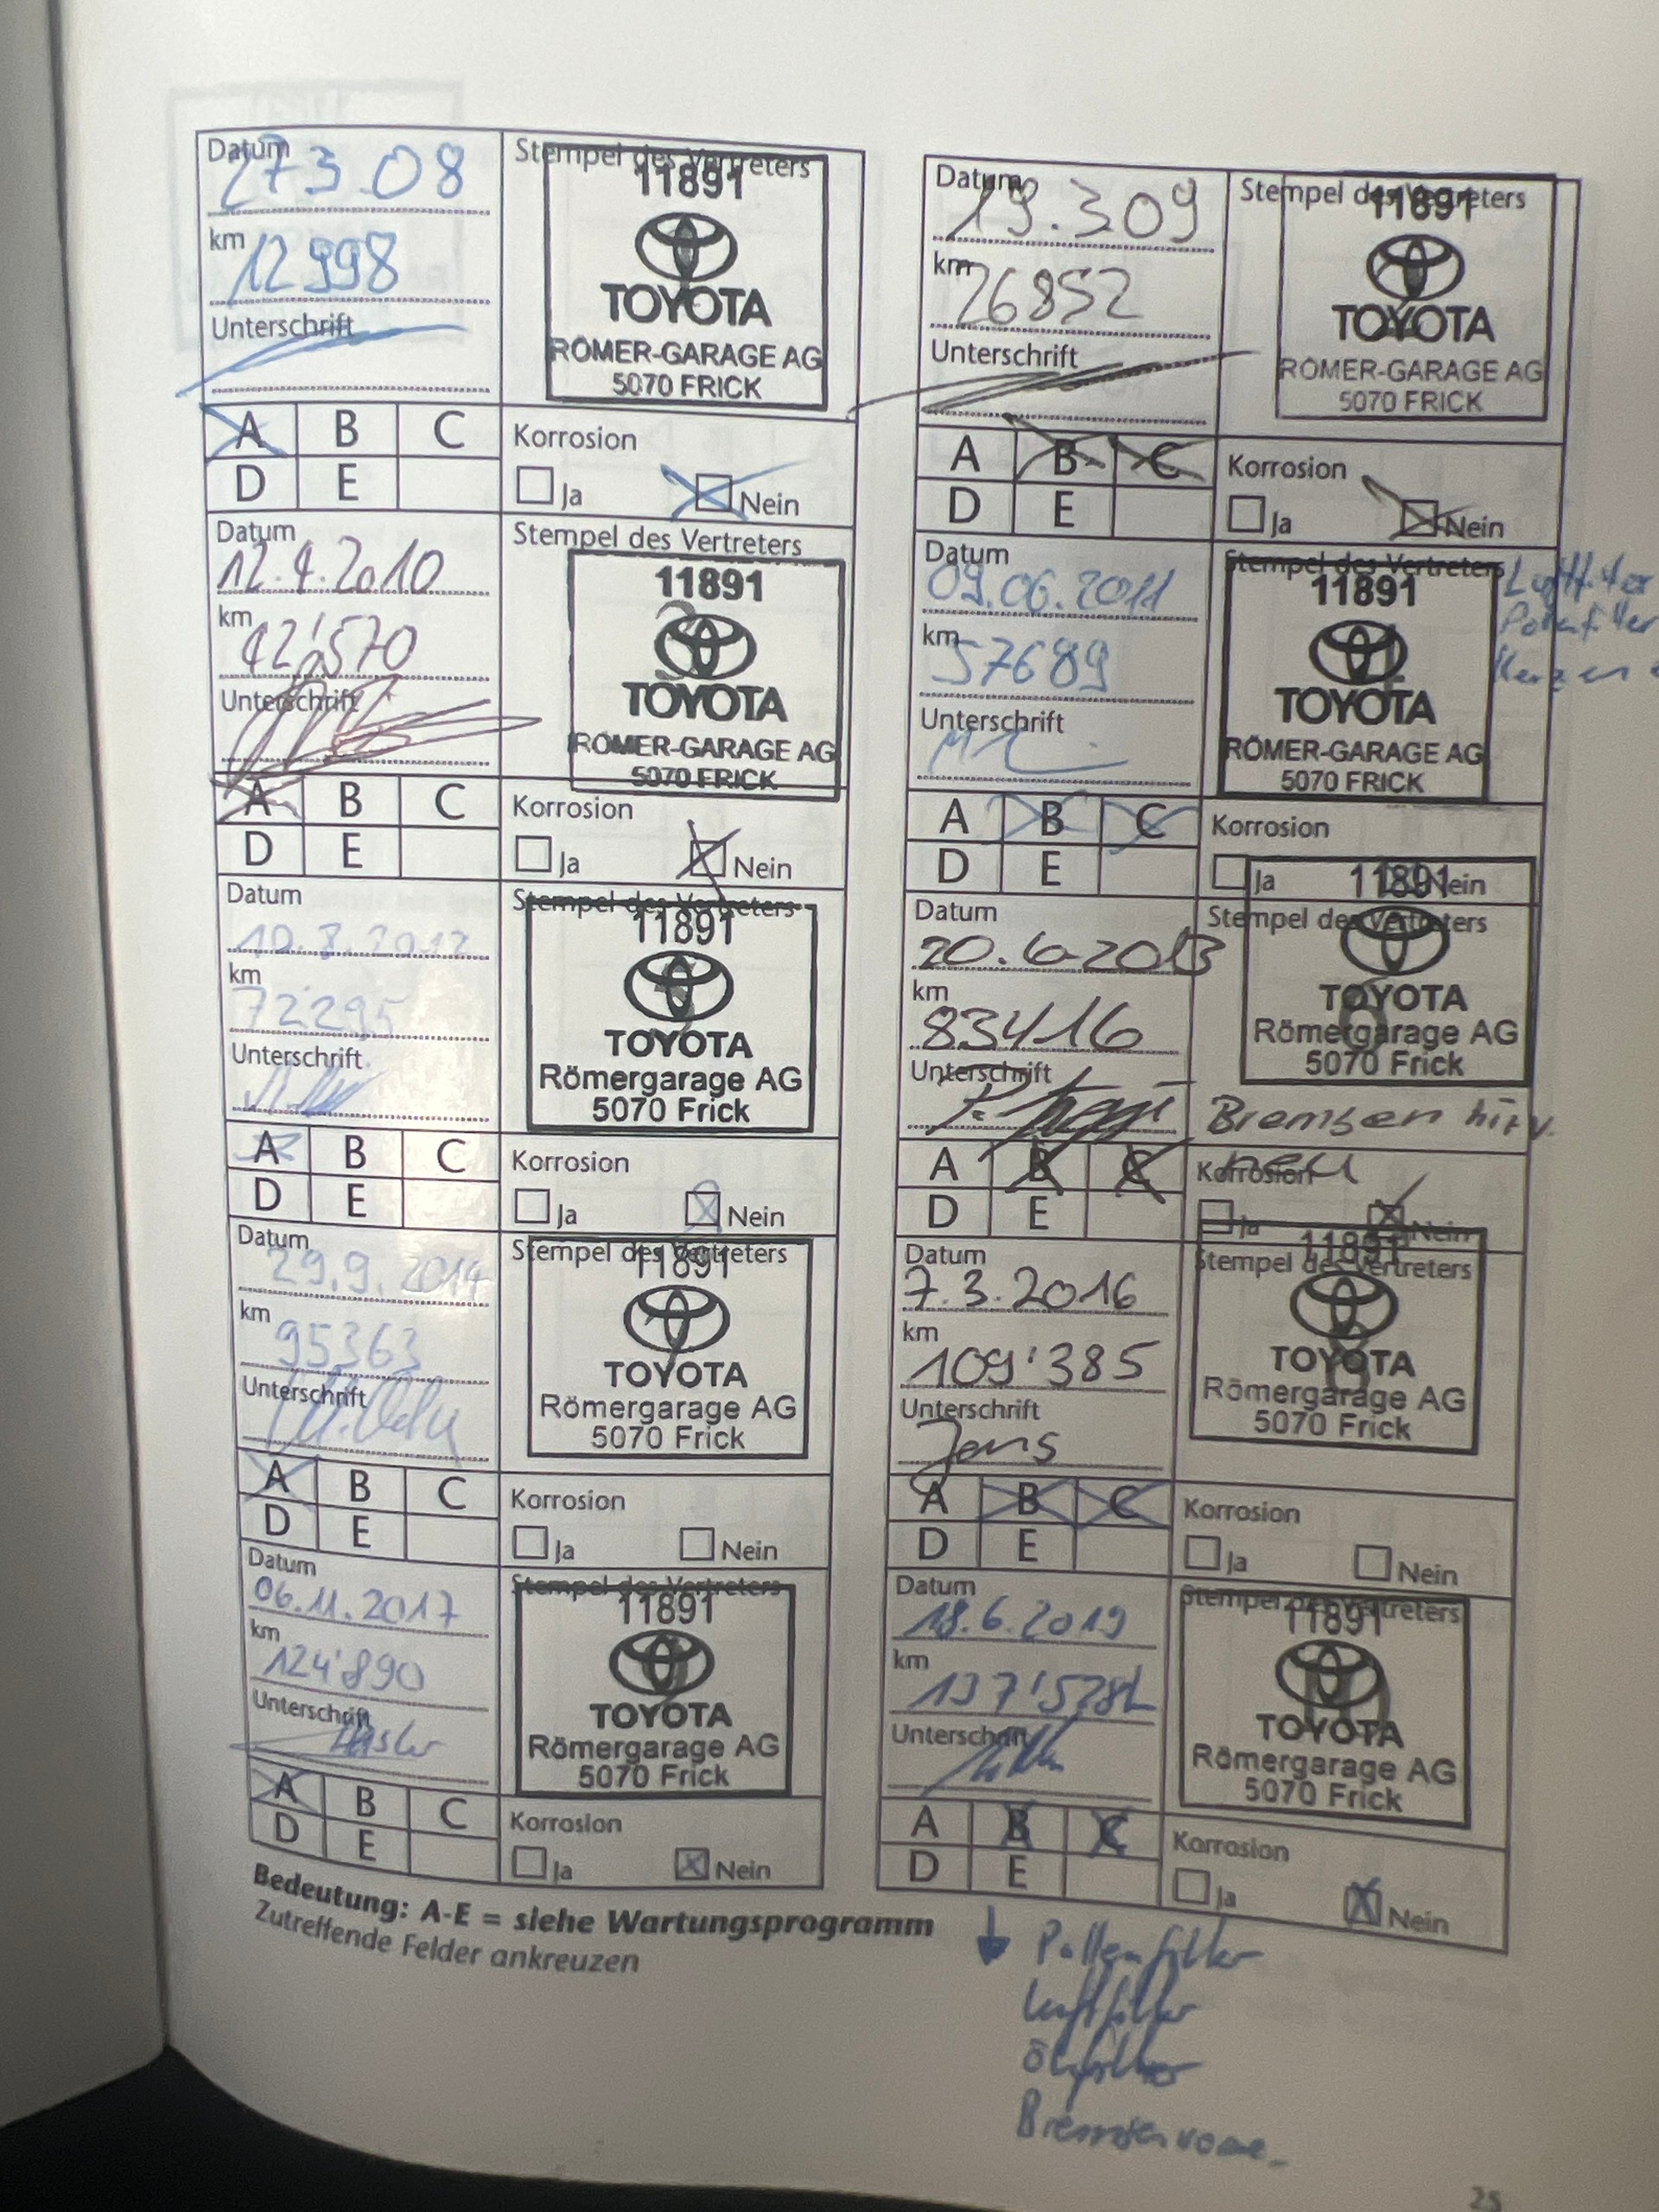 Datum
27.3.08
km
12998
Unterschrift
Stempel des Vertreters
11891
TOYOTA
RÖMER-GARAGE AG
5070 FRICK
A B C
D E
Korrosion
Ja Nein
Datum
19.3.09
km
26852
Unterschrift
Stempel des Vertreters
11891
TOYOTA
RÖMER-GARAGE AG
5070 FRICK
A B C
D E
Korrosion
Ja Nein
Datum
12.4.2010
km
42'570
Unterschrift
Stempel des Vertreters
11891
TOYOTA
RÖMER-GARAGE AG
5070 FRICK
A B C
D E
Korrosion
Ja Nein
Datum
09.06.2011
km
57689
Unterschrift
Stempel des Vertreters
11891
TOYOTA
RÖMER-GARAGE AG
5070 FRICK
Luftfilter
Pollenfilter
Kerzen
A B C
D E
Korrosion
Ja Nein
Datum
10.8.2012
km
72295
Unterschrift
Stempel des Vertreters
11891
TOYOTA
Römergarage AG
5070 Frick
A B C
D E
Korrosion
Ja Nein
Datum
20.6.2013
km
83416
Unterschrift
Stempel des Vertreters
11891
TOYOTA
Römergarage AG
5070 Frick
Bremsen hinv.
neu
A B C
D E
Korrosion
Ja Nein
Datum
29.9.2014
km
95363
Unterschrift
Stempel des Vertreters
11891
TOYOTA
Römergarage AG
5070 Frick
A B C
D E
Korrosion
Ja Nein
Datum
7.3.2016
km
109'385
Unterschrift
Jens
Stempel des Vertreters
11891
TOYOTA
Römergarage AG
5070 Frick
A B C
D E
Korrosion
Ja Nein
Datum
06.11.2017
km
124'890
Unterschrift
Stempel des Vertreters
11891
TOYOTA
Römergarage AG
5070 Frick
A B C
D E
Korrosion
Ja Nein
Datum
18.6.2019
km
137'578
Unterschrift
Stempel des Vertreters
11891
TOYOTA
Römergarage AG
5070 Frick
A B C
D E
Korrosion
Ja Nein
Bedeutung: A-E = siehe Wartungsprogramm
Zutreffende Felder ankreuzen
Pollenfilter
Luftfilter
Ölfilter
Bremsen vorne
25